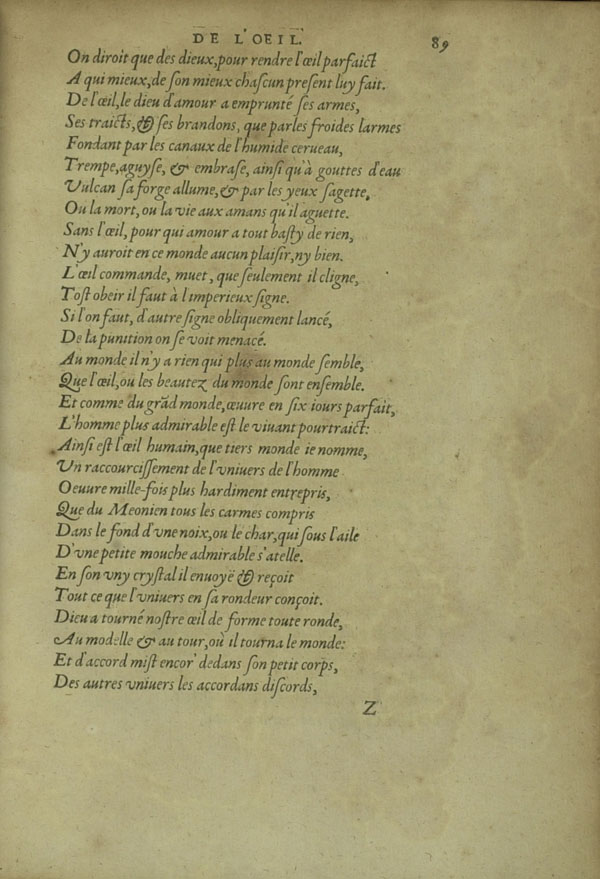 DE L'OEIL.
89
On diroit que des dieux, pour rendre l'œil parfaict
A qui mieux, de son mieux chascun present luy fait.
De l'œil, le dieu d'amour a emprunté ses armes,
Ses traicts, & ses brandons, que par les froides larmes
Fondant par les canaux de l'humide cerueau,
Trempe, aguyse, & embrase, ainsi qu'à gouttes d'eau
Vulcan sa forge allume, & par les yeux sagette,
Ou la mort, ou la vie aux amans qu'il aguette.
Sans l'œil, pour qui amour a tout basty de rien,
N'y auroit en ce monde aucun plaisir, ny bien.
L'œil commande, muet, que seulement il cligne,
Tost obeir il faut à l imperieux signe.
Si l'on faut, d'autre signe obliquement lancé,
De la punition on se voit menacé.
Au monde il n'y a rien qui plus au monde semble,
Que l'œil, ou les beautez du monde sont ensemble.
Et comme du grãd monde, œuure en six iours parfait,
L'homme plus admirable est le viuant pourtraict:
Ainsi est l'œil humain, que tiers monde ie nomme,
Vn raccourcissement de l'vniuers de l'homme
Oeuure mille-fois plus hardiment entrepris,
Que du Meonien tous les carmes compris
Dans le fond d'vne noix, ou le char, qui sous l'aile
D'vne petite mouche admirable s'atelle.
En son vny crystal il enuoyë & reçoit
Tout ce que l'vniuers en sa rondeur conçoit.
Dieu a tourné nostre œil de forme toute ronde,
Au modelle & au tour, où il tourna le monde:
Et d'accord mist encor' dedans son petit corps,
Des autres vniuers les accordans discords,
Z